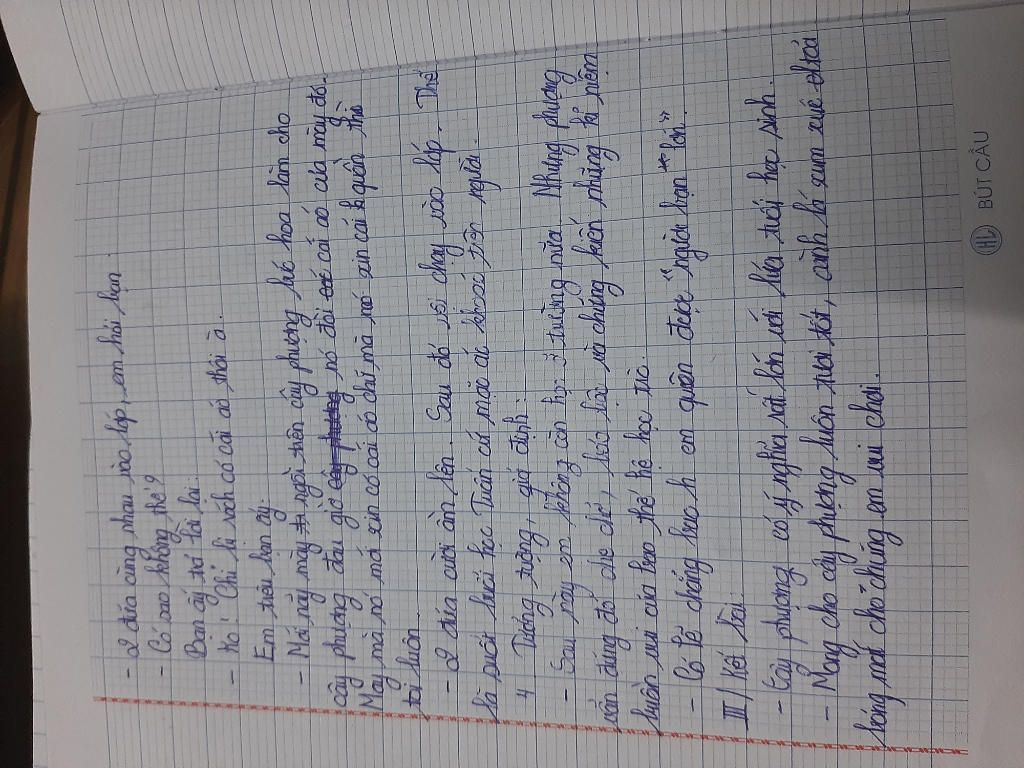 - 2 đứa cùng nhau vào lớp, em hỏi bạn.
- Có sao không thế?
Bạn ấy trả lời lại:
- Ko! Chỉ bị rách có cái áo thôi à.
Em trêu bạn ấy:
- Mới nãy mày ngồi trên cây phượng bẻ hoa làm cho
cây phượng đau giờ cây phượng nó đòi cái áo của mày đó.
May mà nó mới xin có cái áo chứ mà nó xin cái quần thì
toi luôn.
- 2 đứa cười ầm lên. Sau đó rồi chạy vào lớp. Thế
là suốt buổi học Tuấn cứ mặc áo khoác trên người.
4 Tưởng tượng, giả định:
- Sau này em không còn học ở trường nữa. Nhưng phượng
vẫn đứng đó che chở, báo hiệu và chứng kiến những kỉ niệm
buồn vui của bao thế hệ học trò.
- Có lẽ chẳng bao h em quên được "người bạn lớn"
III/ Kết bài:
- Cây phượng có ý nghĩa rất lớn với lứa tuổi học sinh.
- Mong cho cây phượng luôn tươi tốt, cành lá xum xuê
bóng mát cho chúng em vui chơi.
HL BÚT CÂU